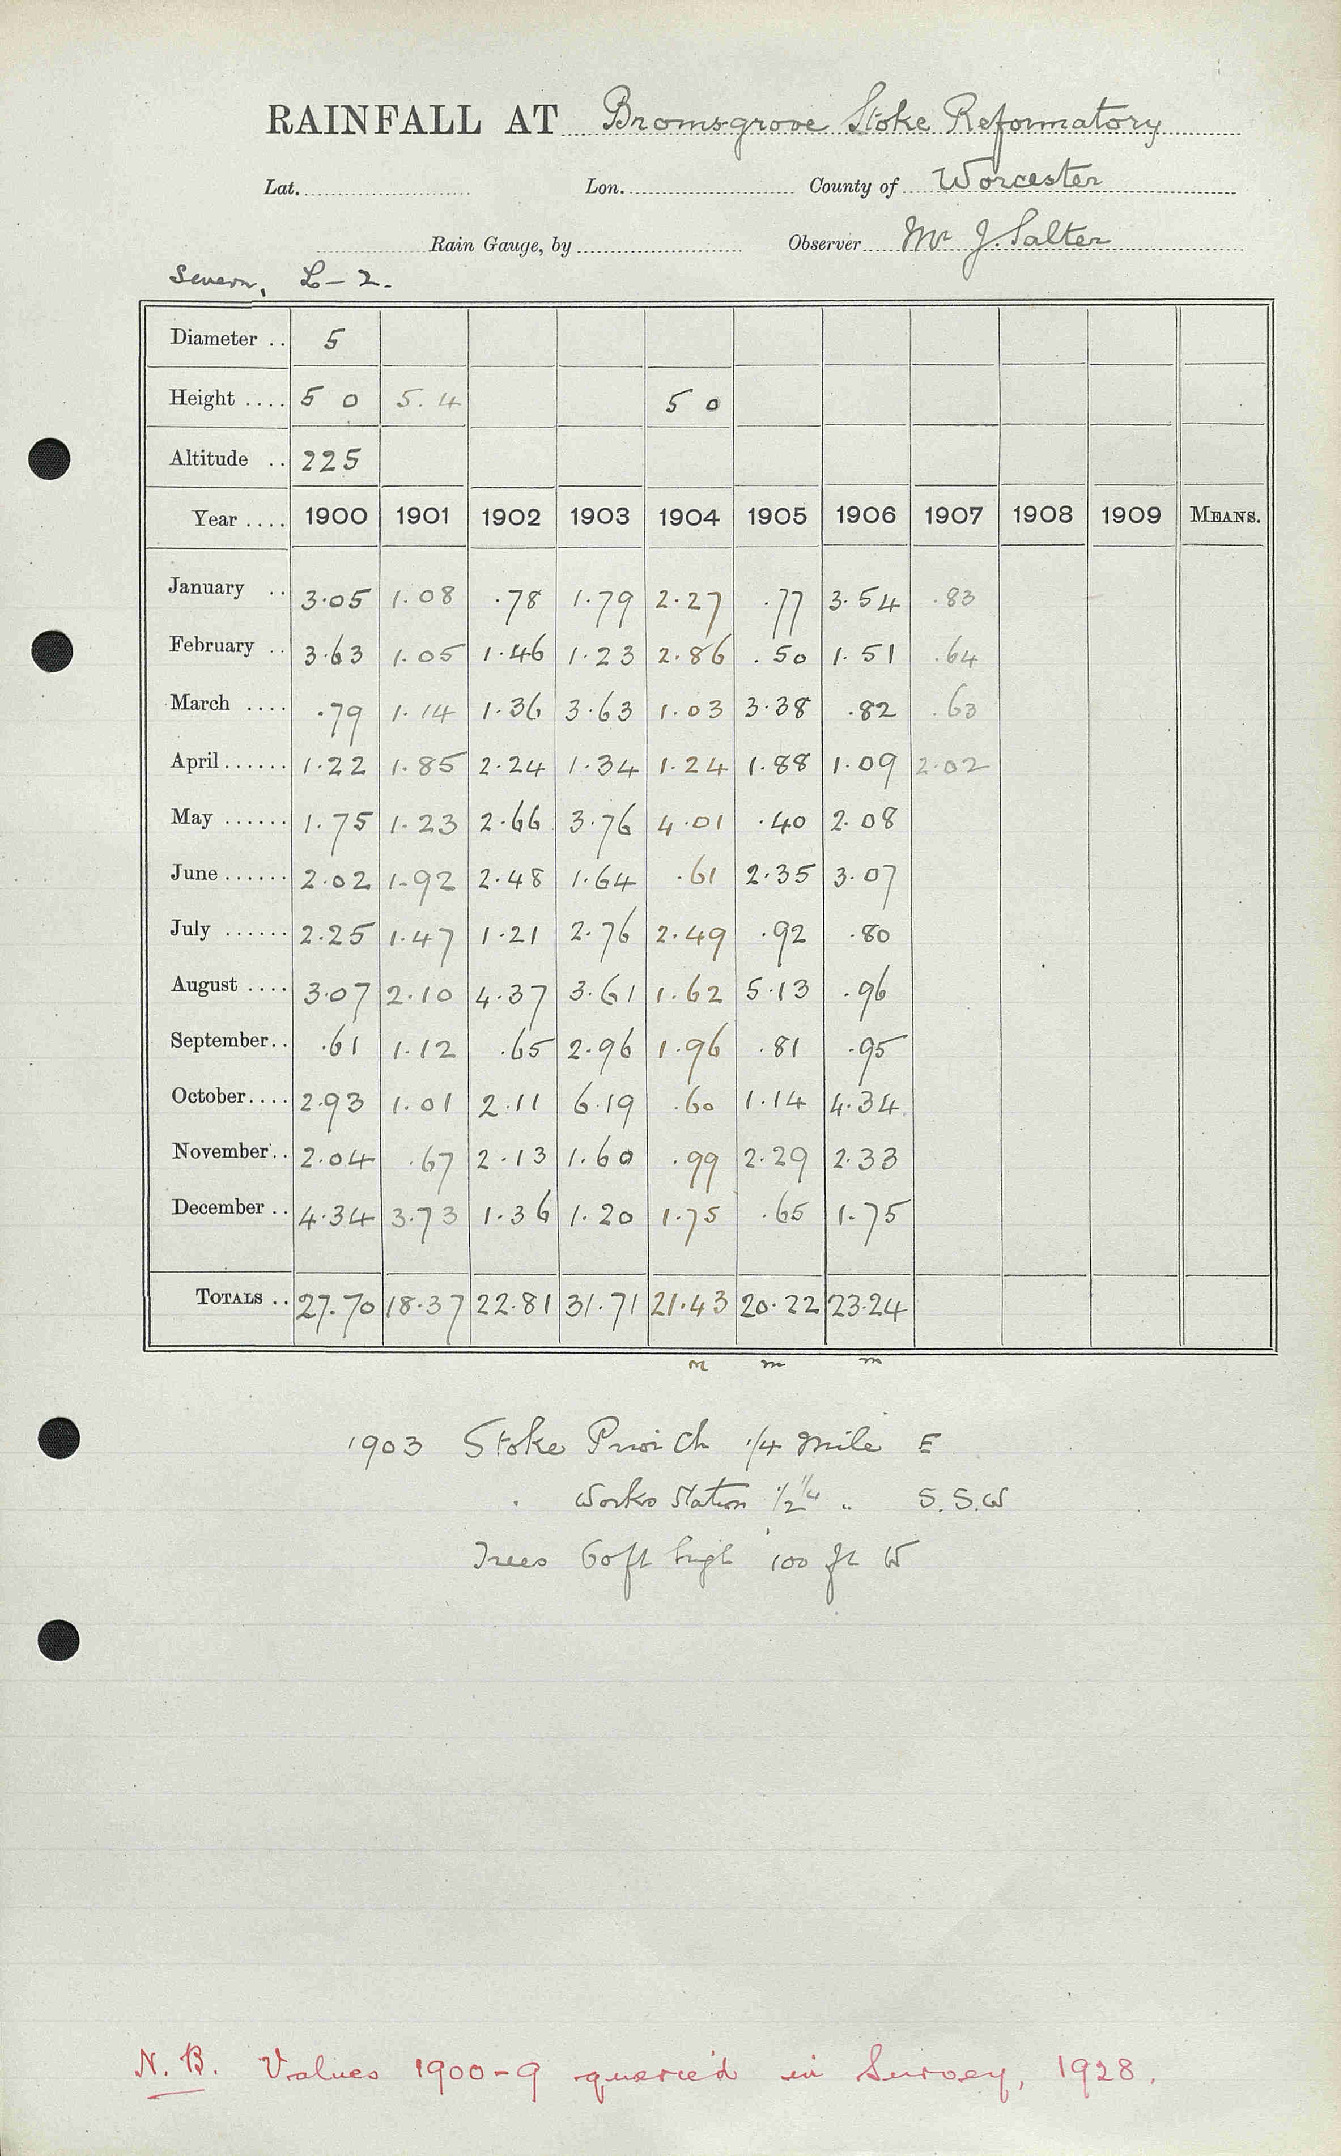 RAINFALL AT Bromsgrove Stoke Reformatory
Lat. Lon. County of Worcester
Rain Gauge, by Observer Mr J. Salter
Severn, L-2.
Diameter .. 5
Height .... 5 0 5.4 5 0
Altitude .. 225
Year .... 1900 1901 1902 1903 1904 1905 1906 1907 1908 1909 MEANS.
January .. 3.05 1.08 .78 1.79 2.27 .77 3.54 .83
February .. 3.63 1.05 1.46 1.23 2.86 .50 1.51 .64
March .... .79 1.14 1.36 3.63 1.03 3.38 .82 .63
April...... 1.22 1.85 2.24 1.34 1.24 1.88 1.09 2.02
May ...... 1.75 1.23 2.66 3.76 4.01 .40 2.08
June ...... 2.02 1.92 2.48 1.64 .61 2.35 3.07
July ...... 2.25 1.47 1.21 2.76 2.49 .92 .80
August .... 3.07 2.10 4.37 3.61 1.62 5.13 .96
September.. .61 1.12 .65 2.96 1.96 .81 .95
October.... 2.93 1.01 2.11 6.19 .60 1.14 4.34
November.. 2.04 .67 2.13 1.60 .99 2.29 2.33
December .. 4.34 3.73 1.36 1.20 1.75 .65 1.75
TOTALS .. 27.70 18.37 22.81 31.71 21.43 20.22 23.24
m m m
1903 Stoke Prior Ch 1/4 mile E
Works Station 1/2 1/4 " S.S.W
Trees 60 ft high 100 ft W
N.B. Values 1900-9 queried in Survey, 1928.